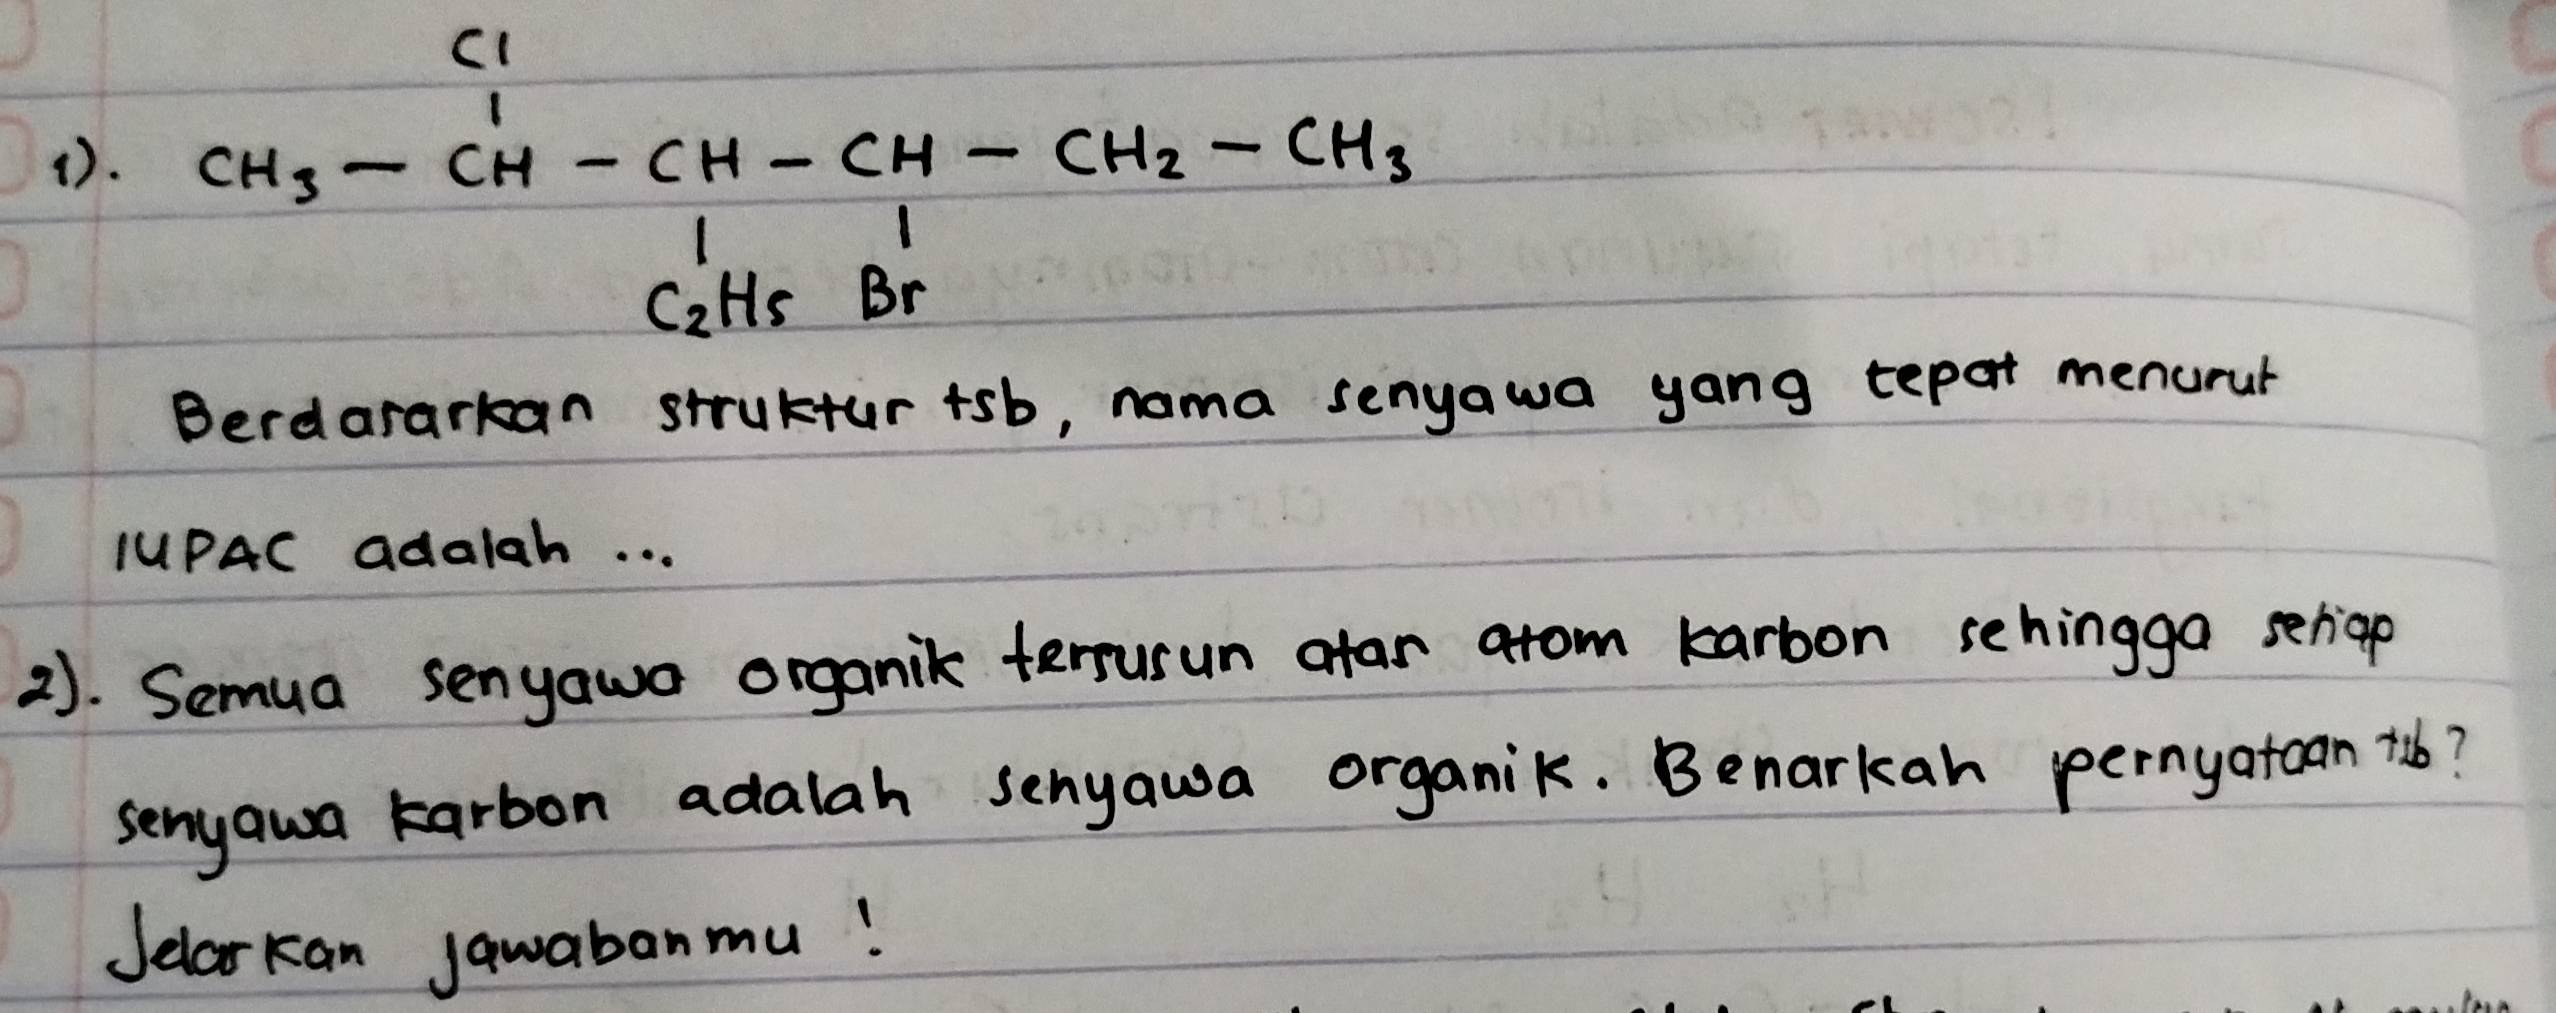 Cl
1). CH3 - CH - CH - CH - CH2 - CH3
C2H5 Br
Berdasarkan struktur tsb, nama senyawa yang tepat menurut
IUPAC adalah ...
2). Semua senyawa organik tersusun atas atom karbon sehingga setiap
senyawa karbon adalah senyawa organik. Benarkah pernyataan tsb?
Jelaskan jawabanmu !